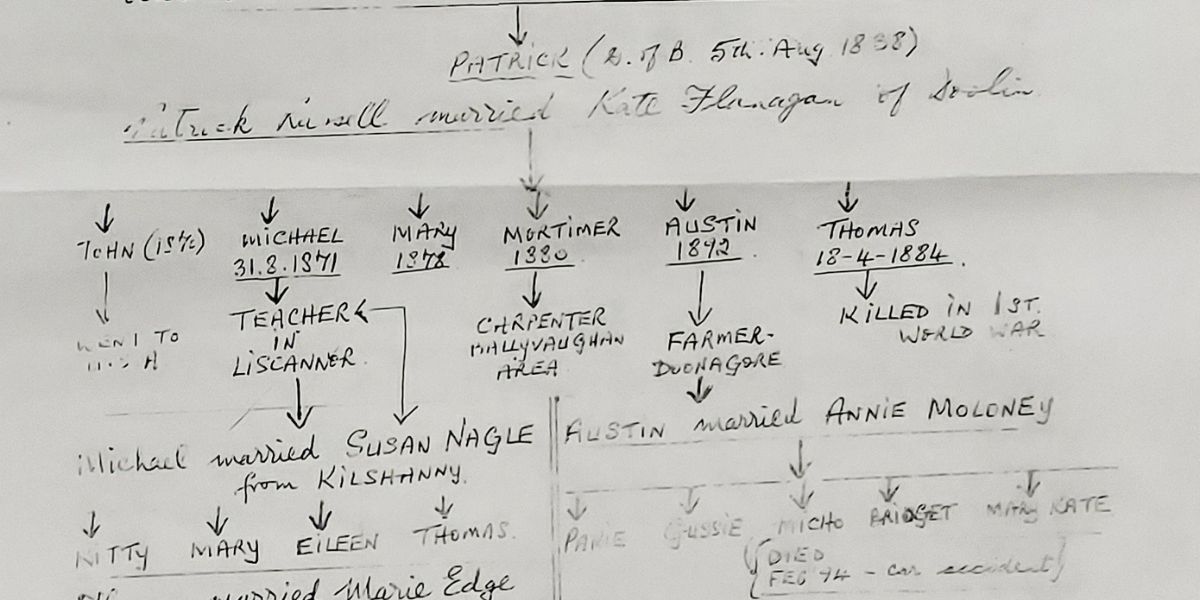 PATRICK (D. of B. 5th. Aug 1838)
Patrick married Kate Flanagan of Doolin
JOHN MICHAEL MARY MORTIMER AUSTIN THOMAS
31.8.1871 1878 1880 1892 18-4-1884.
WENT TO TEACHER CARPENTER FARMER- KILLED IN 1ST.
IN BALLYVAUGHAN DUONAGORE WORLD WAR
LISCANNER AREA
Michael married SUSAN NAGLE
from KILSHANNY.
KITTY MARY EILEEN THOMAS.
married Marie Edge
AUSTIN married ANNIE MOLONEY
GUSSIE MICHO BRIDGET MARY KATE
(DIED
FEB 94 - car accident)